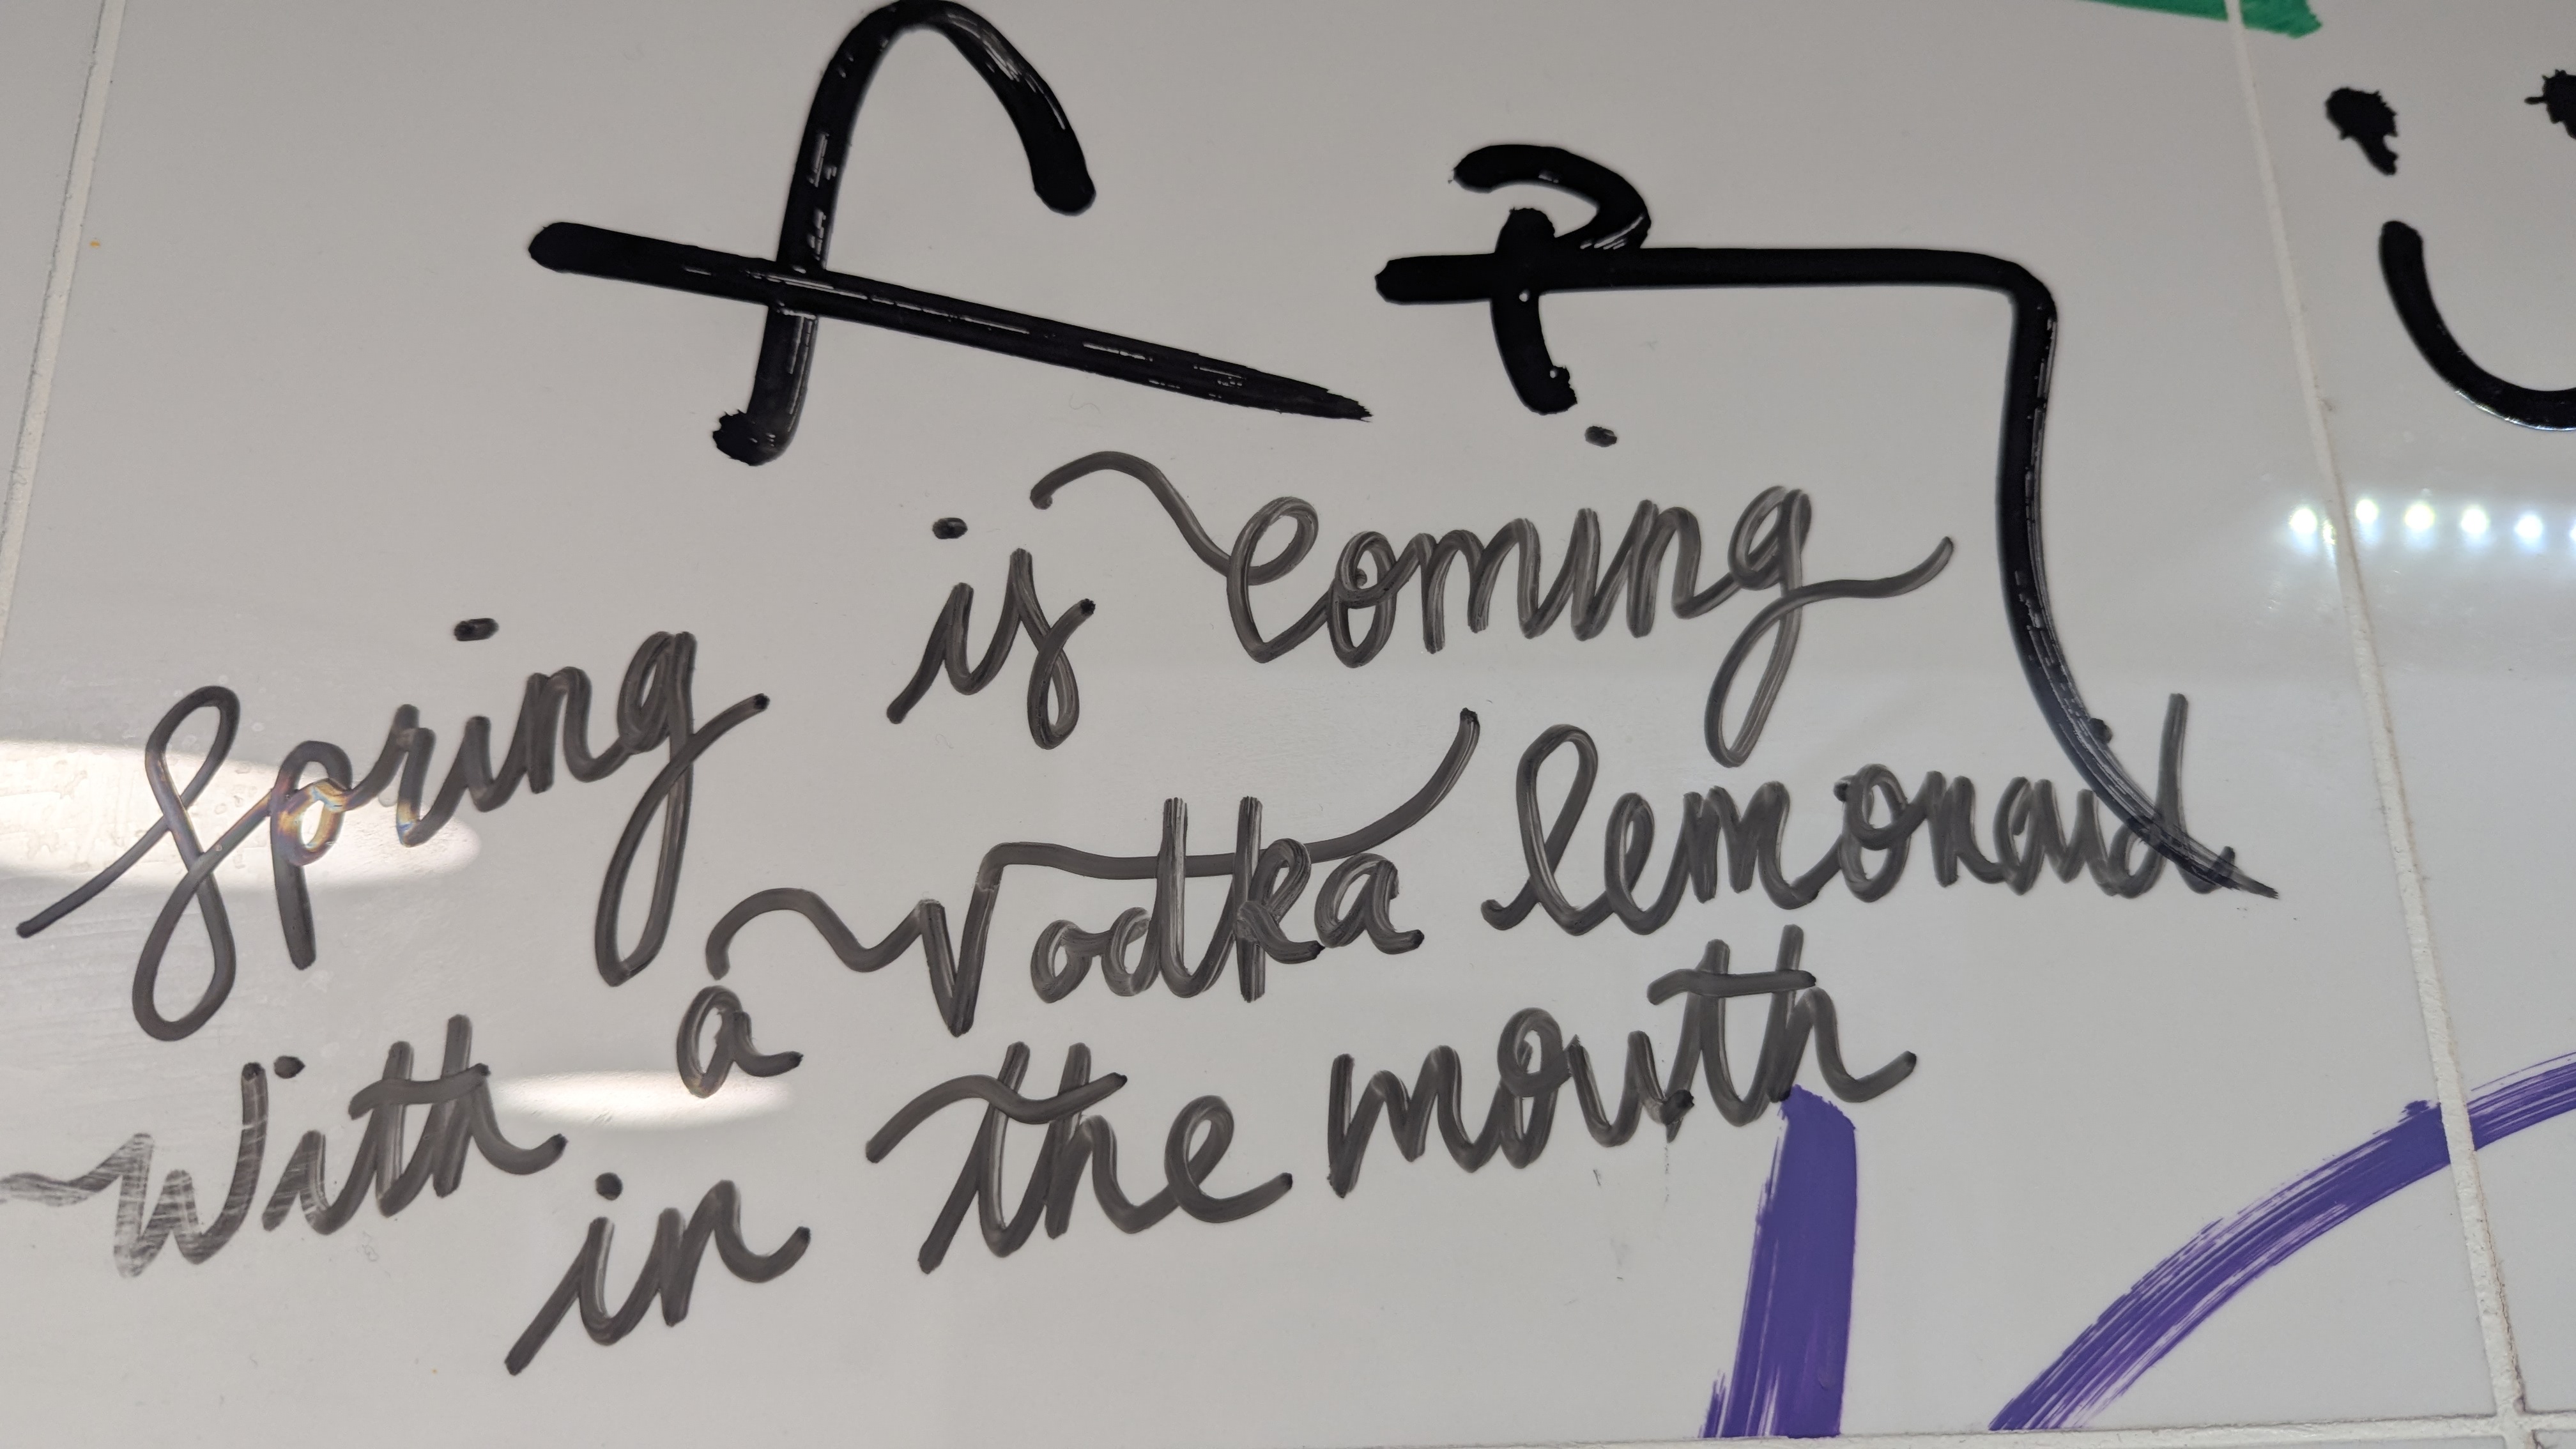 Spring is coming
With a Vodka lemonaid
in the mouth